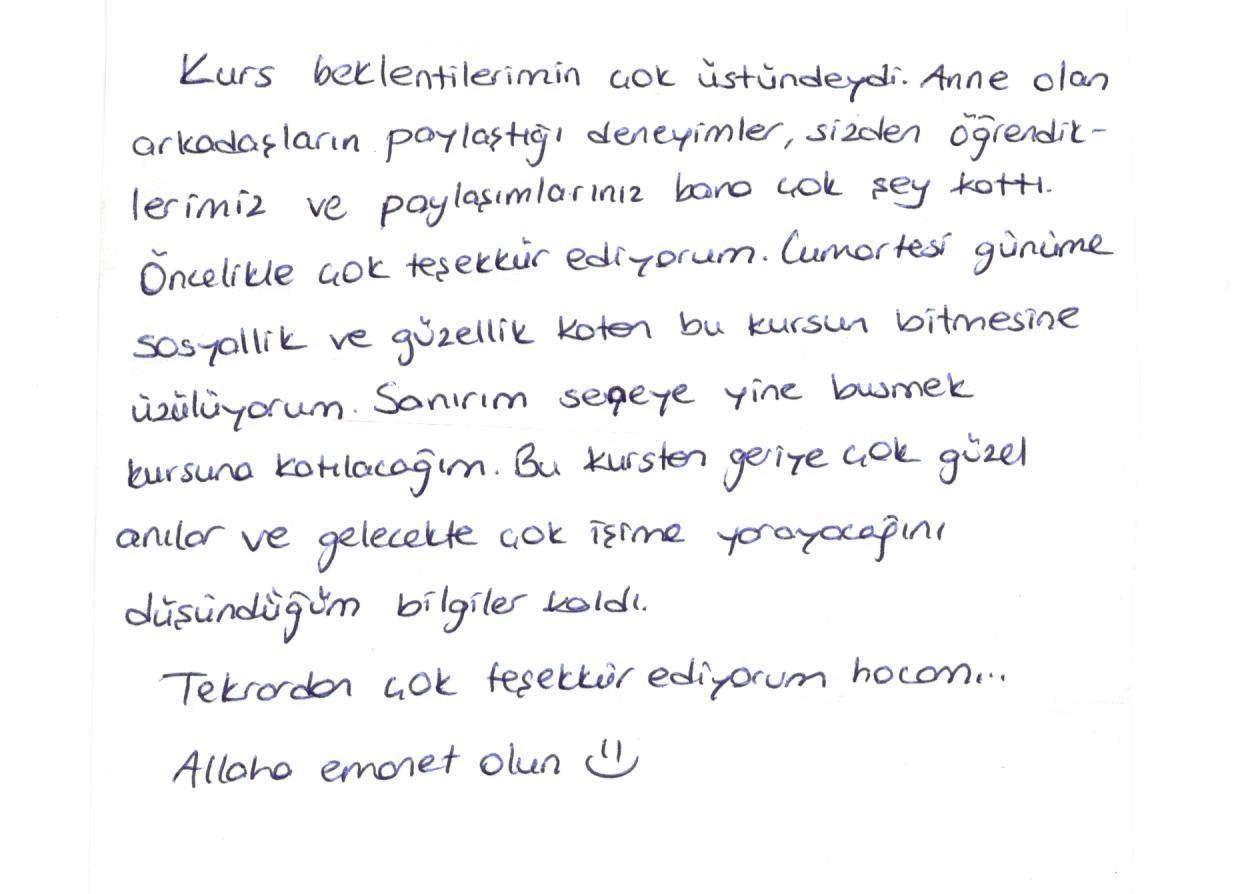 Kurs beklentilerimin çok üstündeydi. Anne olan
arkadaşların paylaştığı deneyimler, sizden öğrendik-
lerimiz ve paylaşımlarınız bana çok şey kattı.
Öncelikle çok teşekkür ediyorum. Cumartesi günüme
sosyallik ve güzellik katan bu kursun bitmesine
üzülüyorum. Sanırım seneye yine busmek
kursuna katılacağım. Bu kurstan geriye çok güzel
anılar ve gelecekte çok işime yarayacağını
düşündüğüm bilgiler kaldı.
Tekrardan çok teşekkür ediyorum hocam...
Allaha emanet olun :)